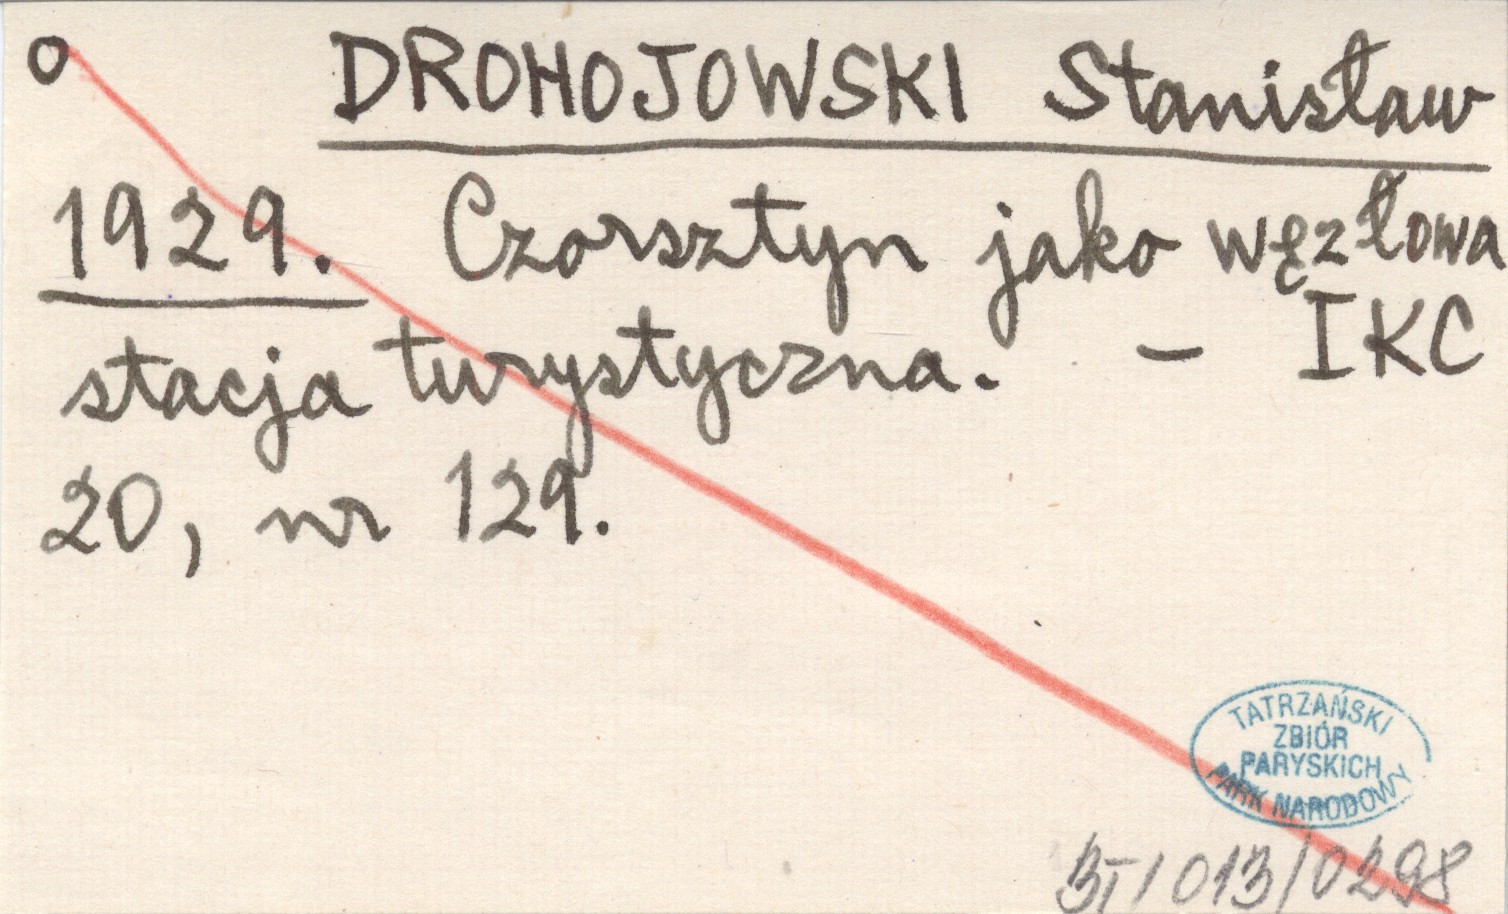 o DROHOJOWSKI Stanisław
1929. Czorsztyn jako węzłowa
stacja turystyczna. - IKC
20, nr 129.
TATRZAŃSKI
ZBIÓR
PARYSKICH
PARK NARODOWY
013/0298